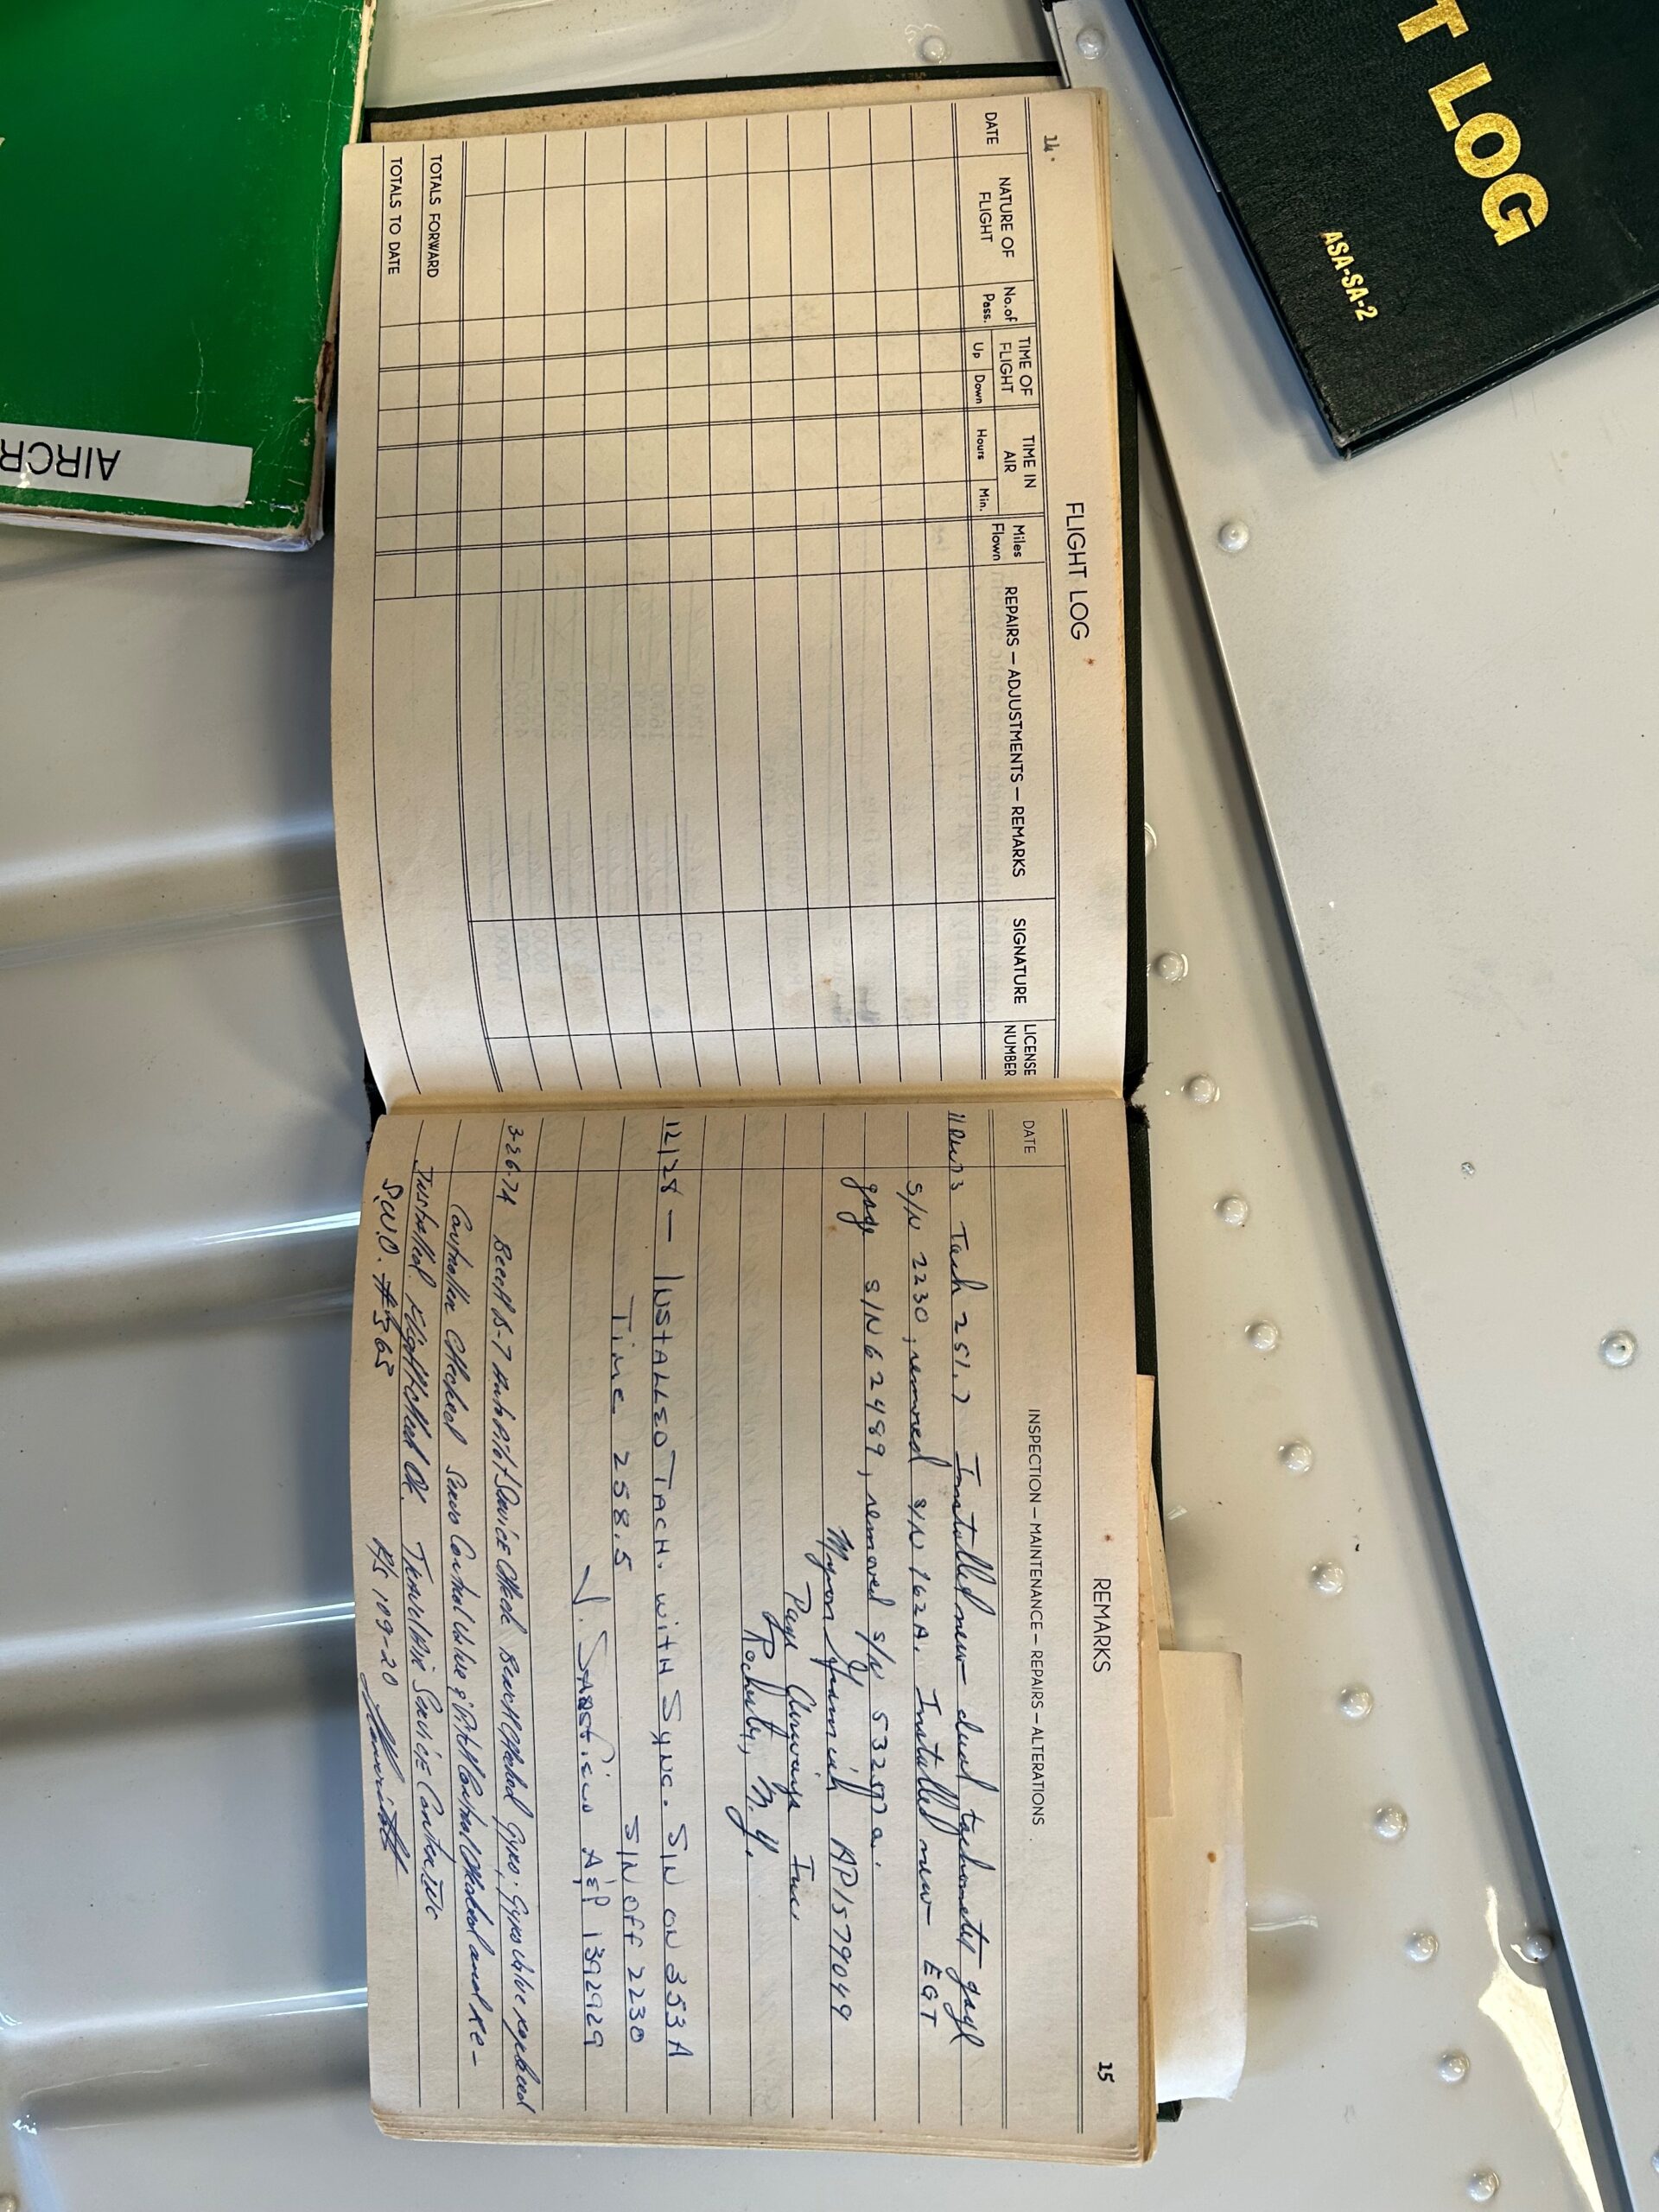 T LOG
ASA-SA-2
AIRCR
14.
FLIGHT LOG
DATE
NATURE OF FLIGHT
No. of Pass.
TIME OF FLIGHT
Up Down
TIME IN AIR
Hours Min.
Miles Flown
REPAIRS — ADJUSTMENTS — REMARKS
SIGNATURE
LICENSE NUMBER
TOTALS FORWARD
TOTALS TO DATE
REMARKS 15
DATE INSPECTION — MAINTENANCE — REPAIRS — ALTERATIONS
Tach 251.7 Installed new dual tachometer gage
S/N 2230, removed S/N 162A. Installed new EGT
gage S/N 62489, removed S/N
Myron AP1579049
Page Airways Inc.
Rochester, N.Y.
12/28 — INSTALLED TACH. WITH SYNC. S/N ON 353A
Time 258.5 S/N OFF 2230
J. A&P 1392929
3-26-74 Beech B-7 Auto Pilot Service Check Bench Checked Gyro. Gyro Valve replaced
Controller Checked Servo Control Valve & Pitch Control Checked and re-
Installed. Flight Check OK. Service Center INC
S.W.O. # R/S 109-20